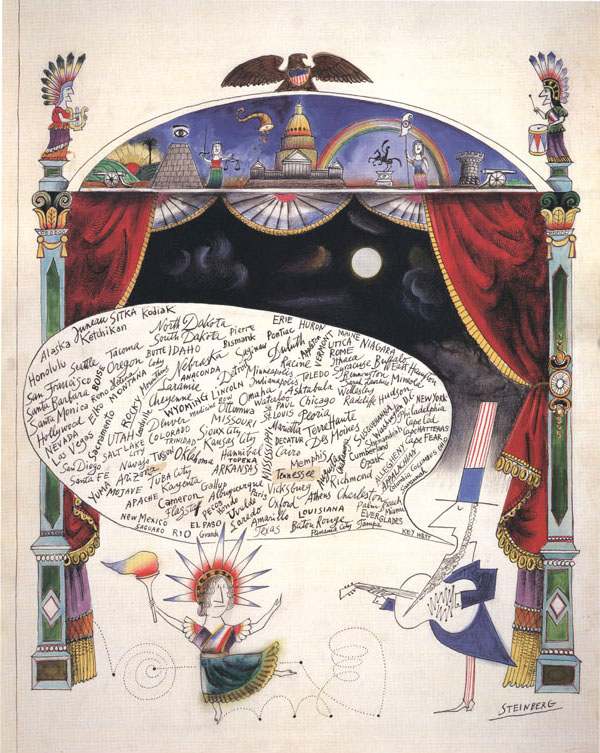 Alaska Juneau SITKA Kodiak
Ketchikan
North Dakota
South Dakota Pierre
Bismarck
ERIE HURON
Pontiac
Duluth
MAINE
UTICA NIAGARA
ROME
VERMONT
Honolulu Seattle Tacoma
Oregon
BUTTE IDAHO
Cody
Nebraska
Saginaw
Racine
Ithaca Buffalo
Syracuse
San Francisco BOISE
Reno
MONTANA
ANACONDA
Detroit Minneapolis TOLEDO
Indianapolis
Santa Barbara
Laramie
Cheyenne
LINCOLN
Omaha Ashtabula
Wellesley
Santa Monica Elko
ROCKY
WYOMING
Denver
Ottumwa
ST PAUL Chicago
Radcliffe Hudson
NEW YORK
Hollywood
NEVADA
Sacramento
UTAH
COLORADO
MISSOURI
ST LOUIS Peoria
Philadelphia
Las Vegas
SALT LAKE
CITY
TRINIDAD
SIOUX CITY
Kansas City
MISSISSIPPI
Marietta Terre Haute
DECATUR Des Moines
Cairo
SUSQUEHANNA
Shenandoah
Cumberland
Cape Cod
Cape HATTERAS
Cape FEAR
San Diego
Santa FE
Navajo
Arizona
Oklahoma Hannibal
TOPEKA
Memphis
Ozark
ALLEGHENY
APPALACHIAN
Yuma
MOJAVE
TUBA CITY
Sargents
ARKANSAS
Tennessee
Richmond
Savannah
APACHE
Cameron
Flagstaff
Gallup
Albuquerque
PECOS
Paris
Vicksburg
Oxford
Athens Charleston
Palm Beach
Miami
NEW MEXICO
SAGUARO
RIO
Grande
EL PASO
Uvalde
Laredo
Amarillo
Texas
LOUISIANA
Baton Rouge
Panama City Tampa
EVERGLADES
KEY WEST
STEINBERG